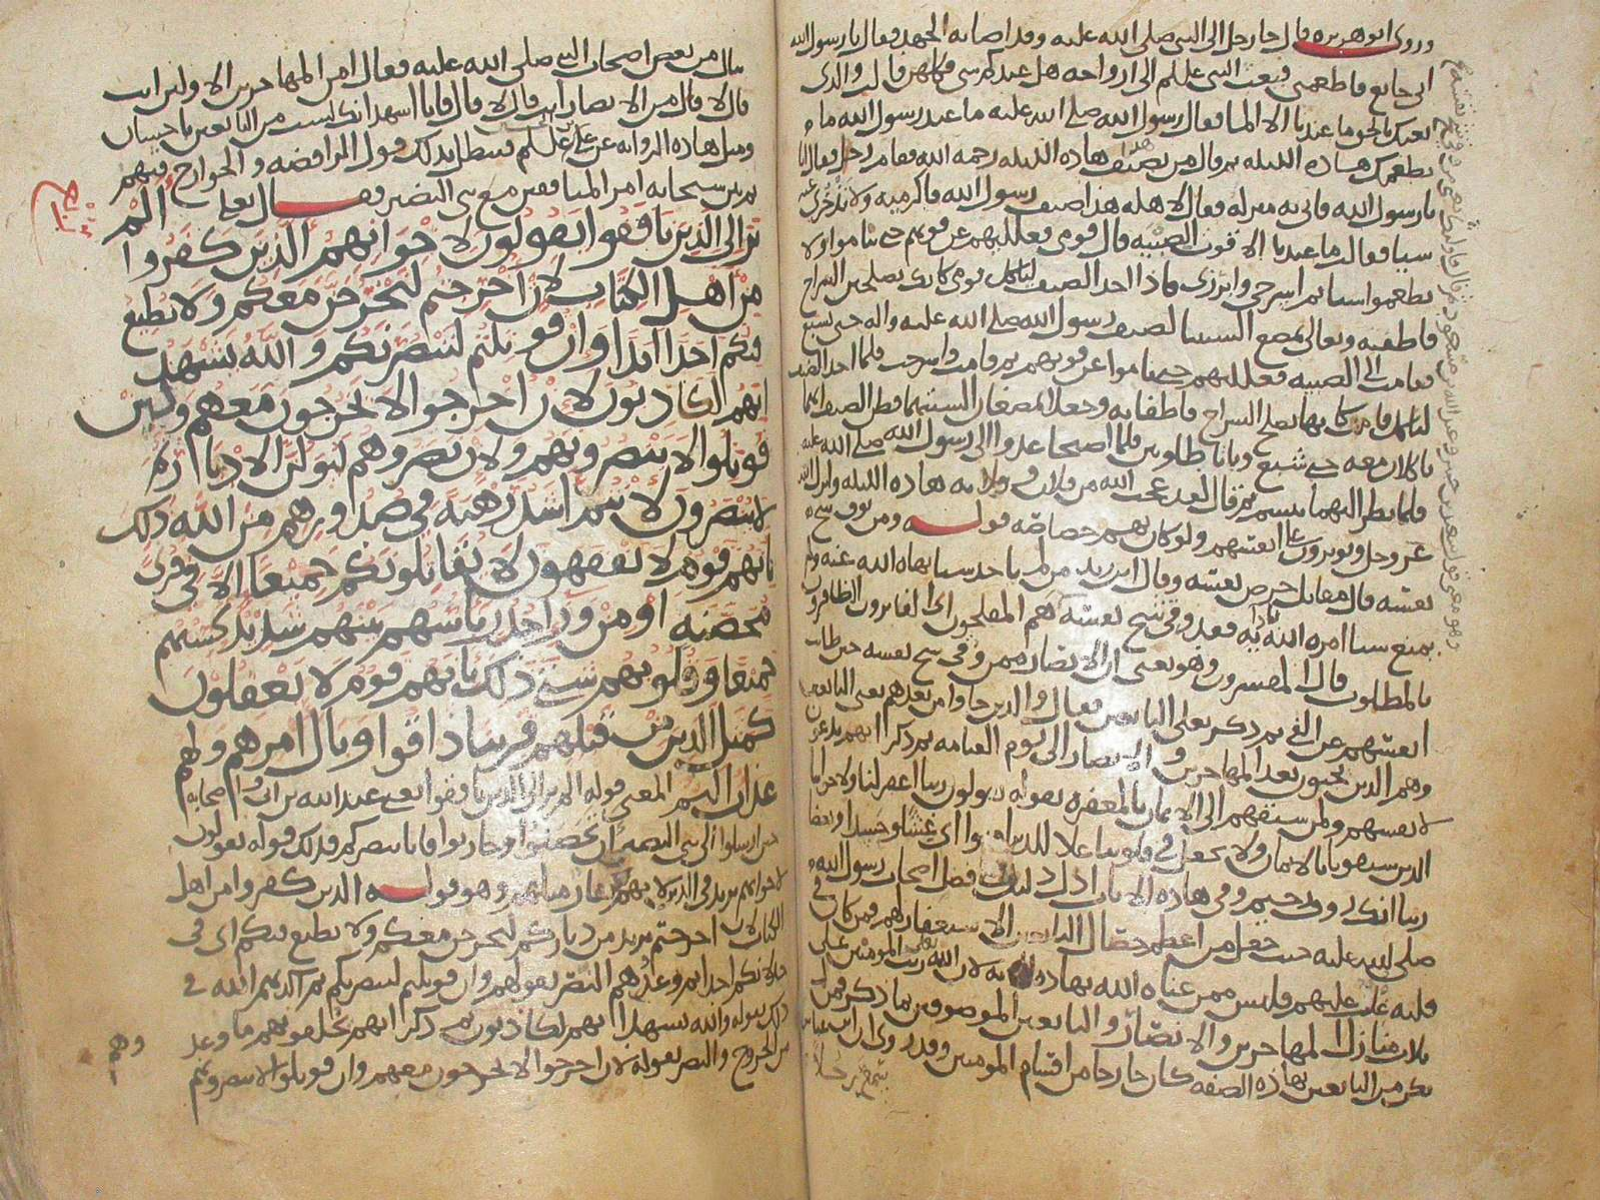 وروى ابو هريره قال جا رجل الى النبي صلى الله عليه وقد اصابه الجهد فقال يا رسول الله
اني جايع فاطعمني فبعث النبي علىلم الى ازواجه هل عندكم شي فكلهن قالت والذي
بعثك بالحق ما عندنا الا الما فقال رسول الله صلى الله عليه ما عند رسول الله ما
يطعمك هاذه الليله ثم قال من يضيف هذا هاذه الليله رحمه الله فقام رجل فقال انا
يا رسول الله فاتى به منزله فقال لاهله هذا ضيف رسول الله فاكرميه ولا تدخري عنه
شيا فقالت ما عندنا الا قوت الصبيه قال قومي فعلليهم عن قوتهم حتى يناموا ولا
يطعموا شيا ثم اسرجي وابرزي فاذا اخذ الضيف لياكل قومي كانك تصلحين السراج
فاطفيه وتعالي نمضغ السنتنا لضيف رسول الله صلى الله عليه واله حتى يشبع
فقامت الى الصبيه فعللتهم حتى ناموا عن قوتهم ثم قامت واسرجت فلما اخذ الضيف
لياكل قامت كانها تصلح السراج فاطفاته وجعلا يمضغان السنتهما فظن الضيف انهما
ياكلان معه حتى شبع وباتا طاويين فلما اصبحا غدوا الى رسول الله صلى الله عليه
فلما نظر اليهما تبسم ثم قال لقد عجب الله من فلان وفلانه هاذه الليله وانزل الله
عز وجل ويوثرون على انفسهم ولو كان بهم خصاصه قوله ومن يوق شح
نفسه قال مقاتل حرص نفسه وقال ابن زيد من لم ياخذ شيا نهاه الله عنه ولم
يمنع شيا امره الله به فقد وقي شح نفسه هم المفلحون اي الفايزون الظافرون
بالمطلوب قال المفسرون وهو يعني ان الانصار ممن وقي شح نفسه حين طابت
انفسهم عن الفي ثم ذكر تعلى التابعين فقال والذين جاوا من بعدهم يعني التابعين
وهم الذين يجيون بعد المهاجرين والانصار الى يوم القيامه ثم ذكر انهم يدعون
لانفسهم ولمن سبقهم الى الايمان بالمغفره بقوله يقولون ربنا اغفر لنا ولاخواننا
الذين سبقونا بالايمان ولا تجعل في قلوبنا غلا للذين امنوا اي غشا وحسدا وبغضا
ربنا انك روف رحيم وفي هاذه الايات ادل دليل فضل اصحاب رسول الله
صلى الله عليه حيث جعل من اعظم خصال التابعين الاستغفار لهم فمن كان في
قلبه غل عليهم فليس ممن عناه الله بهاذه الايه لان الله تعالى رتب المومنين على
ثلاث منازل المهاجرين والانصار والتابعين الموصوفين بما ذكر فمن لم
يكن من التابعين بهاذه الصفه كان خارجا من اقسام المومنين وقد روي ان ابن عباس
سمع رجلا
ينال من بعض اصحاب النبي صلى الله عليه فقال امن المهاجرين الاولين انت
قال لا قال من الانصار انت قال لا قال فانا اشهد انك لست من التابعين باحسان
ومثل هاذه الروايه عن علي علىلم فبطل بذلك قول الرافضه والخوارج فيهم
ثم بين سبحانه امر المنافقين مع بني النضير فقال تعلى الم
تر الى الذين نافقوا يقولون لاخوانهم الذين كفروا
من اهل الكتاب لان اخرجتم لنخرجن معكم ولا نطيع
فيكم احدا ابدا وان قوتلتم لننصرنكم والله يشهد
انهم لكاذبون لان اخرجوا لا يخرجون معهم ولين
قوتلوا لا ينصرونهم ولان نصروهم ليولن الادبار ثم
لا ينصرون لانتم اشد رهبه في صدورهم من الله ذلك
بانهم قوم لا يفقهون لا يقاتلونكم جميعا الا في قرى
محصنه او من وراء جدر باسهم بينهم شديد تحسبهم
جميعا وقلوبهم شتى ذلك بانهم قوم لا يعقلون
كمثل الذين من قبلهم قريبا ذاقوا وبال امرهم ولهم
عذاب اليم المعنى قوله الم تر الى الذين نافقوا يعني عبد الله بن ابي واصحابه
حين ارسلوا الى بني النضير ان تحصنوا وحاربوا فانا ننصركم فذلك قوله يقولون
لاخوانهم يريد في الدين لانهم كفار مثلهم وهو قوله الذين كفروا من اهل
الكتاب لان اخرجتم يريد من دياركم لنخرجن معكم ولا نطيع فيكم اي في
خذلانكم احدا ابدا ثم وعدوهم النصر بقولهم وان قوتلتم لننصرنكم ثم اكذبهم الله في
ذلك بقوله والله يشهد انهم لكاذبون ثم ذكر انهم يخلفونهم ما وعدوهم
من الخروج والنصر بقوله لان اخرجوا لا يخرجون معهم ولان قوتلوا لا ينصرونهم